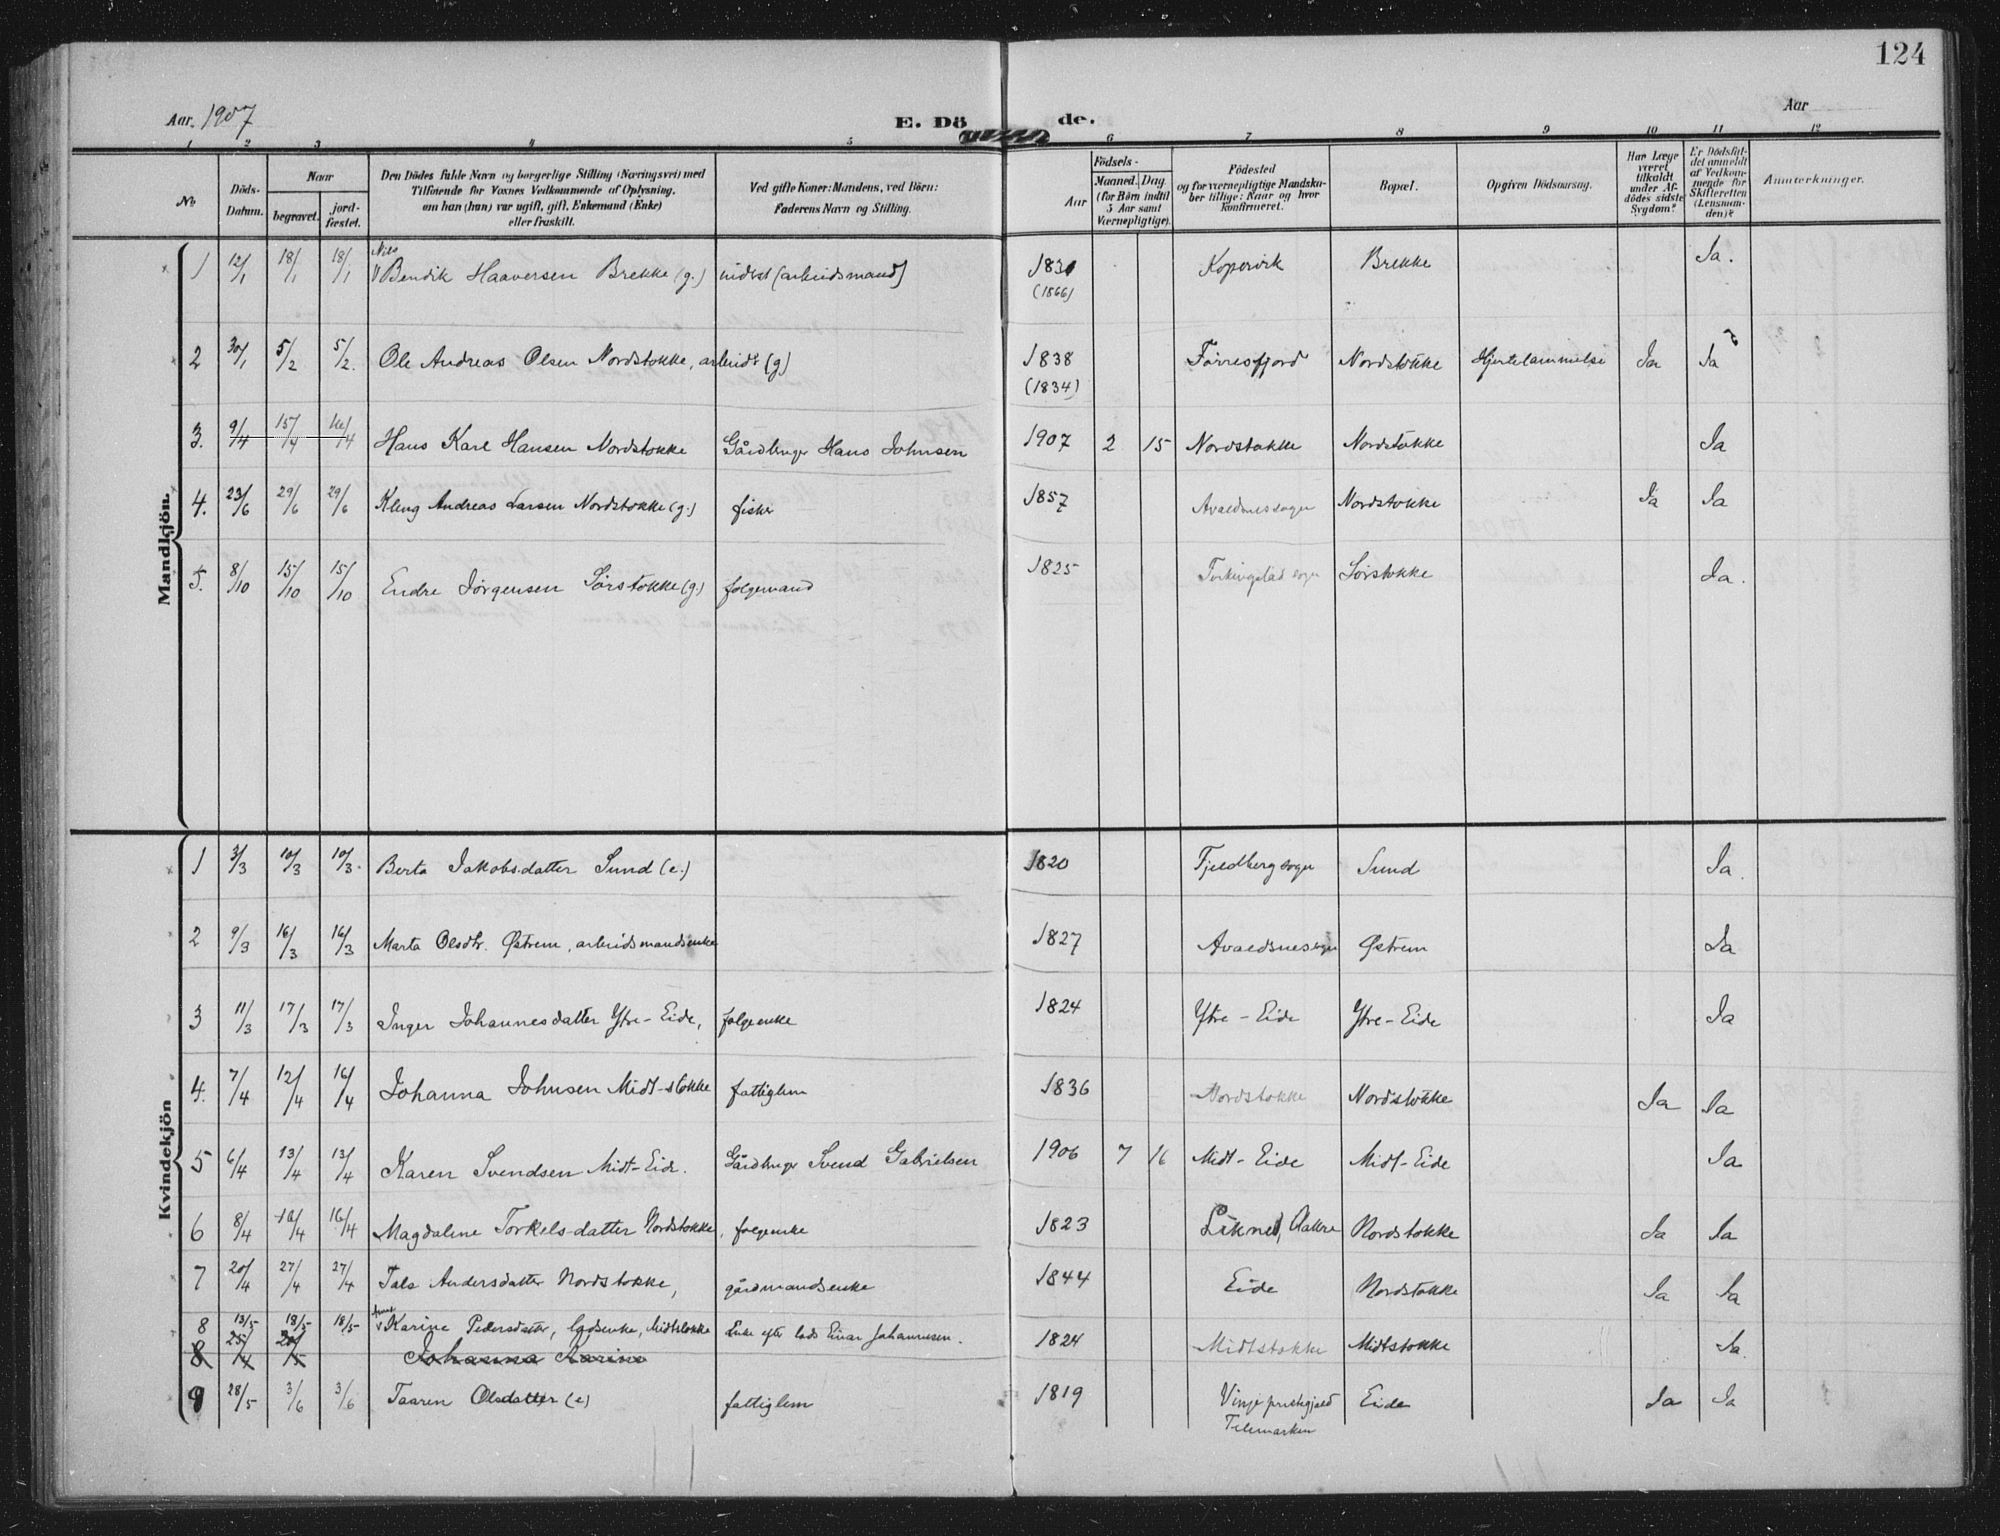 124
Aar 1907 E. Döde. Aar
1 2 3 4 5 6 7 8 9 10 11 12
No
Döds-Datum.
Naar
begravet. jordfæstet.
Den Dödes fulde Navn og borgerlige Stilling (Næringsvei) med
Tilföiende for Voxnes Vedkommende af Oplysning,
om han (hun) var ugift, gift, Enkemand (Enke)
eller fraskilt.
Ved gifte Koner: Mandens, ved Börn:
Faderens Navn og Stilling.
Födsels-
Aar
Maaned. Dag
(for Börn indtil
5 Aar samt
Værnepligtige).
Födested
og for værnepligtige Mandska-
ber tillige: Naar og hvor
konfirmeret.
Bopæl.
Opgiven Dödsaarsag.
Har Læge
været
tilkaldt
under Af-
dödes sidste
Sygdom?
Er Dödsfal-
det anmeldt
af Vedkom-
mende for
Skifteretten
(Lensman-
den)?
Anmærkninger.
Mandkjön.
Nils
1 12/1 18/1 18/1 Bendik Haaversen Brekke (g.) indst (arbeidsmand) 1831 Kopervik Brekke Ja.
(1866)
2 30/1 5/2 5/2. Ole Andreas Olsen Nordstokke, arbeidr (g) 1838 Førresfjord Nordstokke Hjertelammelse Ja Ja
(1834)
3. 9/4 15/4 16/4 Hans Karl Hansen Nordstokke Gårdbruger Hans Johnsen 1907 2 15 Nordstokke Nordstokke Ja
4. 23/6 29/6 29/6 Kleng Andreas Larsen Nordstokke (g.) fisker 1857 Avaldsnes sogn Nordstokke Ja Ja
5. 8/10 15/10 15/10 Endre Jørgensen Sørstokke (g.) folgemand 1825 Torkingstad sogn Sørstokke Ja.
Kvindekjön
1 3/3 10/3 10/3. Berta Jakobsdatter Sund (e.) 1820 Fjeldberg sogn Sund Ja.
2 9/3 16/3 16/3 Marta Olsdtr. Østrem, arbeidsmandsenke 1827 Avaldsnes sogn Østrem Ja
3 11/3 17/3 17/3 Inger Johannesdatter Ytre-Eide, folgeenke 1824 Ytre-Eide Ytre-Eide Ja
4. 7/4 12/4 16/4 Johanna Johnsen Midt-stokke fattiglem 1836 Nordstokke Nordstokke Ja Ja
5 6/4 13/4 13/4 Karen Svendsen Midt-Eide. Gårdbruger Svend Gabrielsen 1906 7 16 Midt-Eide Midt-Eide Ja
6 8/4 16/4 16/4 Magdaline Torkelsdatter Nordstokke, folgeenke 1823 Aakre Nordstokke Ja Ja
7 20/4 27/4 27/4 Tala Andersdatter Nordstokke, gårdmandsenke 1844 Eide Nordstokke Ja Ja
8 13/5 18/5 18/5 Karine Pedersdatter, lodsenke, Midtstokke Enke efter lods Einar Johannesen. 1824 Midtstokke Midtstokke Ja.
8 25/4 Johanna Karine
9 28/5 3/6 3/6 Taaren Olsdatter (e) fattiglem 1819 Vinje prestegjæld Eide Ja Ja
Telemarken